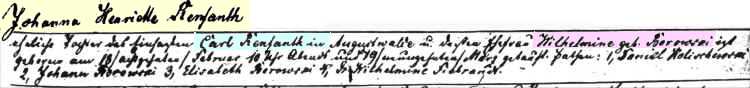 Johanna Henriette Rensanth
eheliche Tochter des Einsassen Carl Rensanth in Augustwalde u. dessen Ehefrau Wilhelmine geb. Borowski ist
geboren am 18/achtzehnten/ Februar 10 Uhr Abends und 19/neunzehnten/ März getauft. Pathen: 1, Daniel
2, Johann Borowski 3, Elisabeth Borowski 4, Wilhelmine